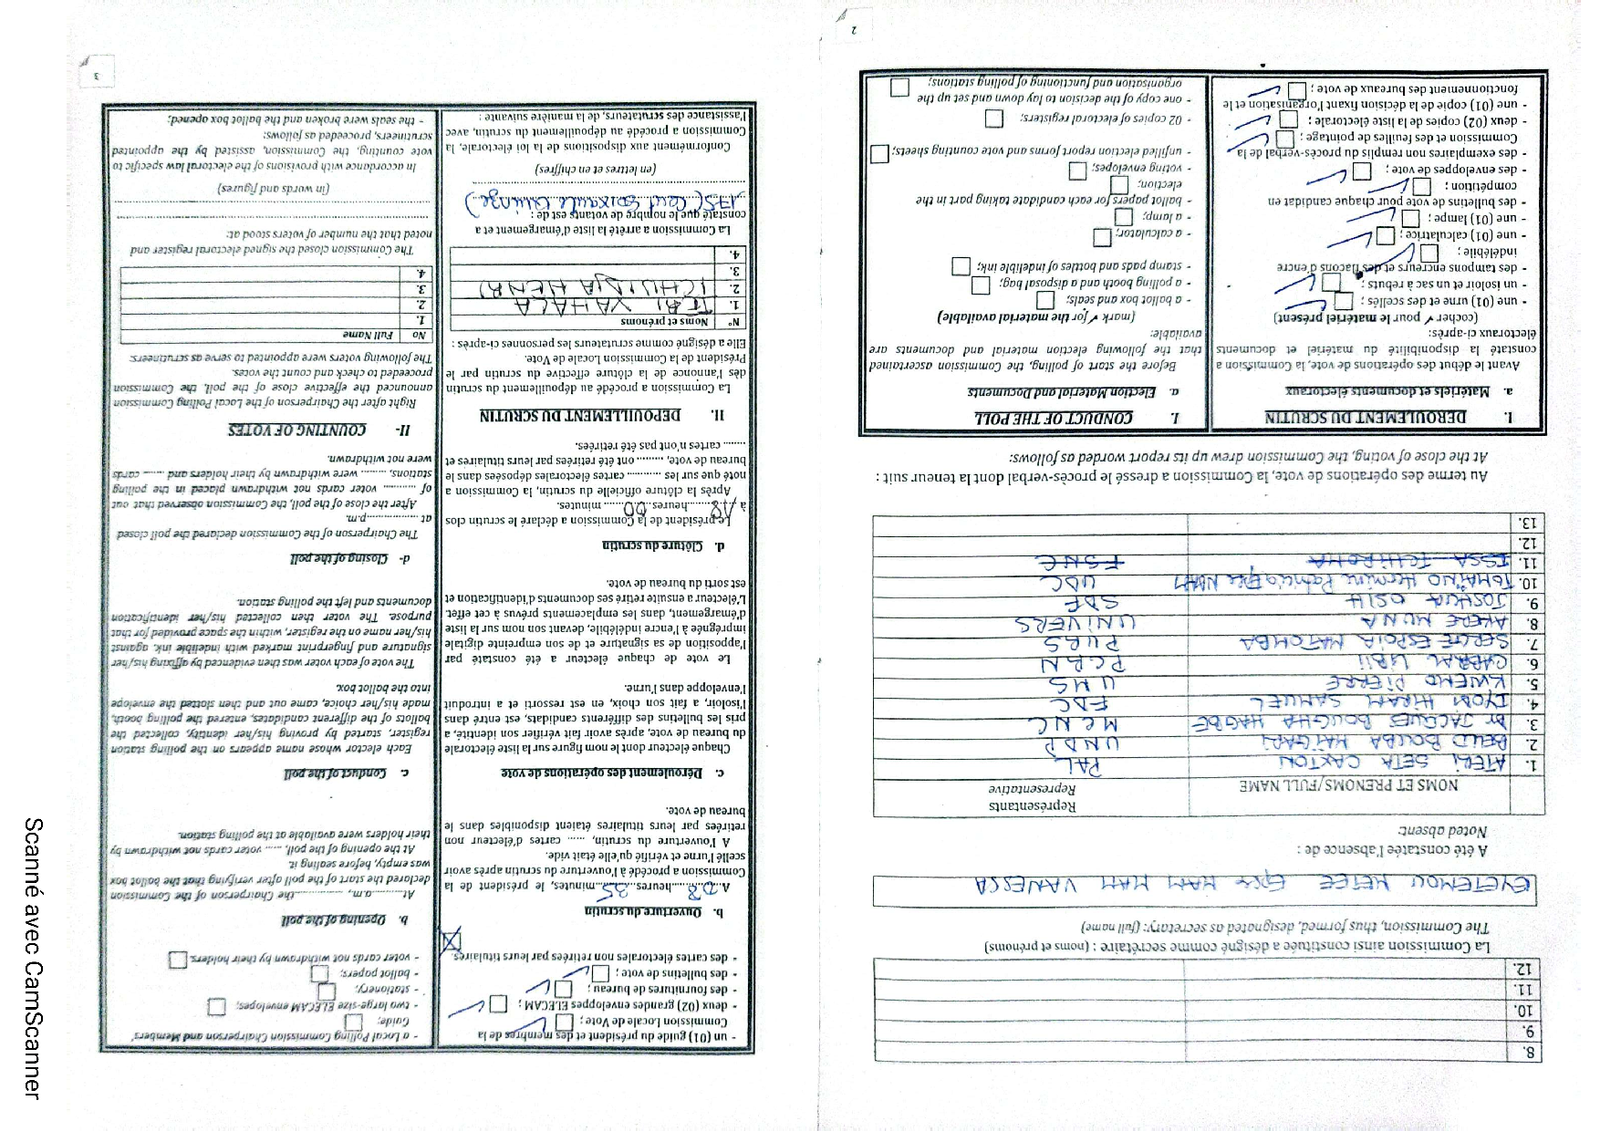 8.
9.
10.
11.
12.
La Commission ainsi constituée a désigné comme secrétaire : (noms et prénoms)
The Commission, thus formed, designated as secretary: (full name)
EYETEMOU METEE Epse MAM MAM VANESSA
A été constatée l'absence de :
Noted absent:
NOMS ET PRENOMS/FULL NAME Représentants
Representative
1. ATEKI SETA CAXTON PAL
2. BELLO BOUBA MAÏGARI UNDP
3. Dr JACQUES BOUGHA HAGBE MCNC
4. IYODI HIRAM SAMUEL FDC
5. KWEMO PIERRE UMS
6. CABRAL LIBII PCRN
7. SERGE ESPOIR MATOMBA PURS
8. AKERE MUNA UNIVERS
9. JOSHUA OSIH SDF
10. TOMAÏNO Hermine Patricia Epse NDAM UDC
11. ISSA TCHIROMA FSNC
12.
13.
Au terme des opérations de vote, la Commission a dressé le procès-verbal dont la teneur suit :
At the close of voting, the Commission drew up its report worded as follows:
I. DEROULEMENT DU SCRUTIN
a. Matériels et documents électoraux
Avant le début des opérations de vote, la Commission a
constaté la disponibilité du matériel et documents
électoraux ci-après:
(cocher ✓ pour le matériel présent)
- une (01) urne et des scellés ;
- un isoloir et un sac à rebuts ;
- des tampons encreurs et des flacons d'encre
indélébile ;
- une (01) calculatrice ;
- une (01) lampe ;
- des bulletins de vote pour chaque candidat en
compétition ;
- des enveloppes de vote ;
- des exemplaires non remplis du procès-verbal de la
Commission et des feuilles de pointage ;
- deux (02) copies de la liste électorale ;
- une (01) copie de la décision fixant l'organisation et le
fonctionnement des bureaux de vote ;
I. CONDUCT OF THE POLL
a. Election Material and Documents
Before the start of polling, the Commission ascertained
that the following election material and documents are
available:
(mark ✓ for the material available)
- a ballot box and seals;
- a polling booth and a disposal bag;
- stamp pads and bottles of indelible ink;
- a calculator;
- a lamp;
- ballot papers for each candidate taking part in the
election;
- voting envelopes;
- unfilled election report forms and vote counting sheets;
- 02 copies of electoral registers;
- one copy of the decision to lay down and set up the
organisation and functioning of polling stations;
2
- un (01) guide du président et des membres de la
Commission Locale de Vote ;
- deux (02) grandes enveloppes ELECAM ;
- des fournitures de bureau ;
- des bulletins de vote ;
- des cartes électorales non retirées par leurs titulaires.
b. Ouverture du scrutin
A 08 heures 35 minutes, le président de la
Commission a procédé à l'ouverture du scrutin après avoir
scellé l'urne et vérifié qu'elle était vide.
A l'ouverture du scrutin, ...... cartes d'électeur non
retirées par leurs titulaires étaient disponibles dans le
bureau de vote.
c. Déroulement des opérations de vote
Chaque électeur dont le nom figure sur la liste électorale
du bureau de vote, après avoir fait vérifier son identité, a
pris les bulletins des différents candidats, est entré dans
l'isoloir, a fait son choix, en est ressorti et a introduit
l'enveloppe dans l'urne.
Le vote de chaque électeur a été constaté par
l'apposition de sa signature et de son empreinte digitale
imprégnée à l'encre indélébile, devant son nom sur la liste
d'émargement, dans les emplacements prévus à cet effet.
L'électeur a ensuite retiré ses documents d'identification et
est sorti du bureau de vote.
d. Clôture du scrutin
Le président de la Commission a déclaré le scrutin clos
à 18 heures 00 minutes.
Après la clôture officielle du scrutin, la Commission a
noté que sur les ......... cartes électorales déposées dans le
bureau de vote, ......... ont été retirées par leurs titulaires et
...... cartes n'ont pas été retirées.
II. DEPOUILLEMENT DU SCRUTIN
La Commission a procédé au dépouillement du scrutin
dès l'annonce de la clôture effective du scrutin par le
Président de la Commission Locale de Vote.
Elle a désigné comme scrutateurs les personnes ci-après :
N° Noms et prénoms
1. TEBI YAHALA
2. TCHUINDJA HENRI
3.
4.
La Commission a arrêté la liste d'émargement et a
constaté que le nombre de votants est de :
175 (Cent soixante quinze)
(en lettres et en chiffres)
Conformément aux dispositions de la loi électorale, la
Commission a procédé au dépouillement du scrutin, avec
l'assistance des scrutateurs, de la manière suivante :
- a Local Polling Commission Chairperson and Members'
Guide;
- two large-size ELECAM envelopes;
- stationery;
- ballot papers;
- voter cards not withdrawn by their holders.
b. Opening of the poll
At............a.m, ............ the Chairperson of the Commission
declared the start of the poll after verifying that the ballot box
was empty, before sealing it.
At the opening of the poll, ...... voter cards not withdrawn by
their holders were available at the polling station.
c. Conduct of the poll
Each elector whose name appears on the polling station
register, started by proving his/her identity, collected the
ballots of the different candidates, entered the polling booth,
made his/her choice, came out and then slotted the envelope
into the ballot box.
The vote of each voter was then evidenced by affixing his/her
signature and fingerprint marked with indelible ink, against
his/her name on the register, within the space provided for that
purpose. The voter then collected his/her identification
documents and left the polling station.
d- Closing of the poll
The Chairperson of the Commission declared the poll closed
at ...............p.m.
After the close of the poll, the Commission observed that out
of ......... voter cards not withdrawn placed in the polling
stations, ......... were withdrawn by their holders and ...... cards
were not withdrawn.
II- COUNTING OF VOTES
Right after the Chairperson of the Local Polling Commission
announced the effective close of the poll, the Commission
proceeded to check and count the votes.
The following voters were appointed to serve as scrutineers:
No Full Name
1.
2.
3.
4.
The Commission closed the signed electoral register and
noted that the number of voters stood at:
(in words and figures)
In accordance with provisions of the electoral law specific to
vote counting, the Commission, assisted by the appointed
scrutineers, proceeded as follows:
- the seals were broken and the ballot box opened;
3
Scanné avec CamScanner